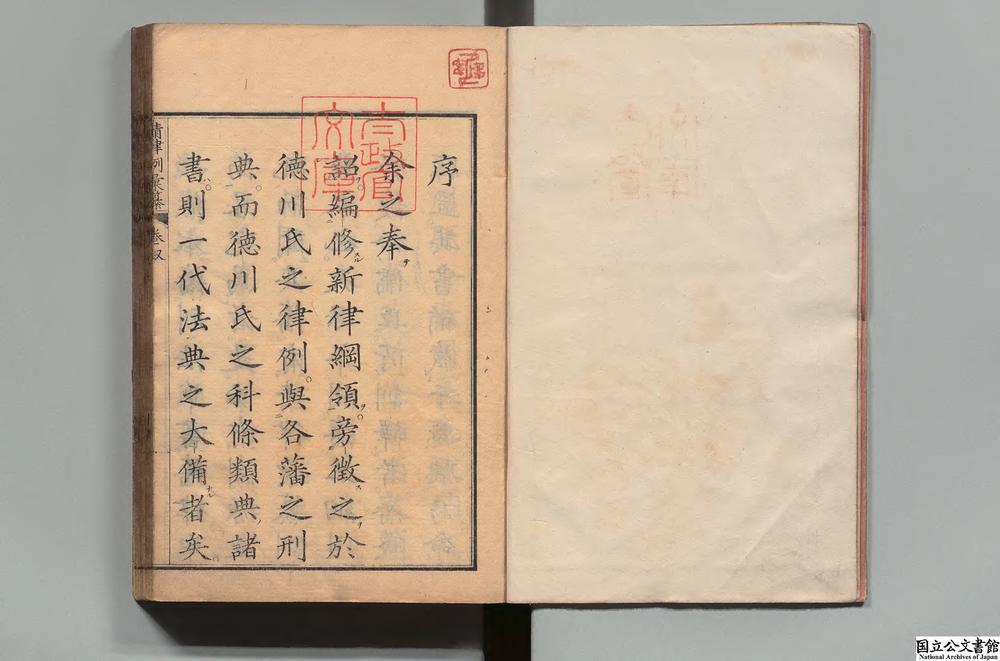 序
余之奉
詔編修新律綱領旁徴之於
徳川氏之律例。與各藩之刑
典。而徳川氏之科條類典諸
書則一代法典之大備者矣。
清律例彙纂
太政官文庫
国立公文書館
National Archives of Japan